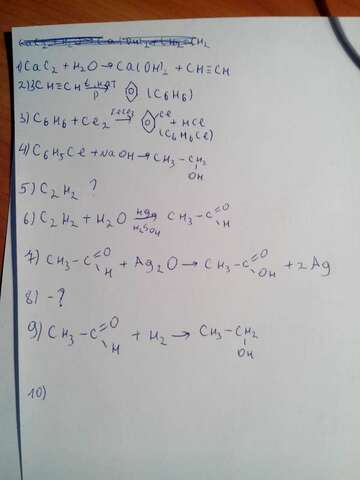 1) CaC₂ + H₂O → Ca(OH)₂ + CH≡CH
2) 3CH≡CH t, кат → p (C₆H₆)
3) C₆H₆ + Cl₂ FeCl₃ → Cl + HCl
(C₆H₅Cl)
4) C₆H₅Cl + NaOH → CH₃-CH₂
OH
5) C₂H₂ ?
6) C₂H₂ + H₂O Hg, H₂SO₄ → CH₃-C=O
H
7) CH₃-C=O H + Ag₂O → CH₃-C=O OH + 2Ag
8) - ?
9) CH₃-C=O H + H₂ → CH₃-CH₂
OH
10)